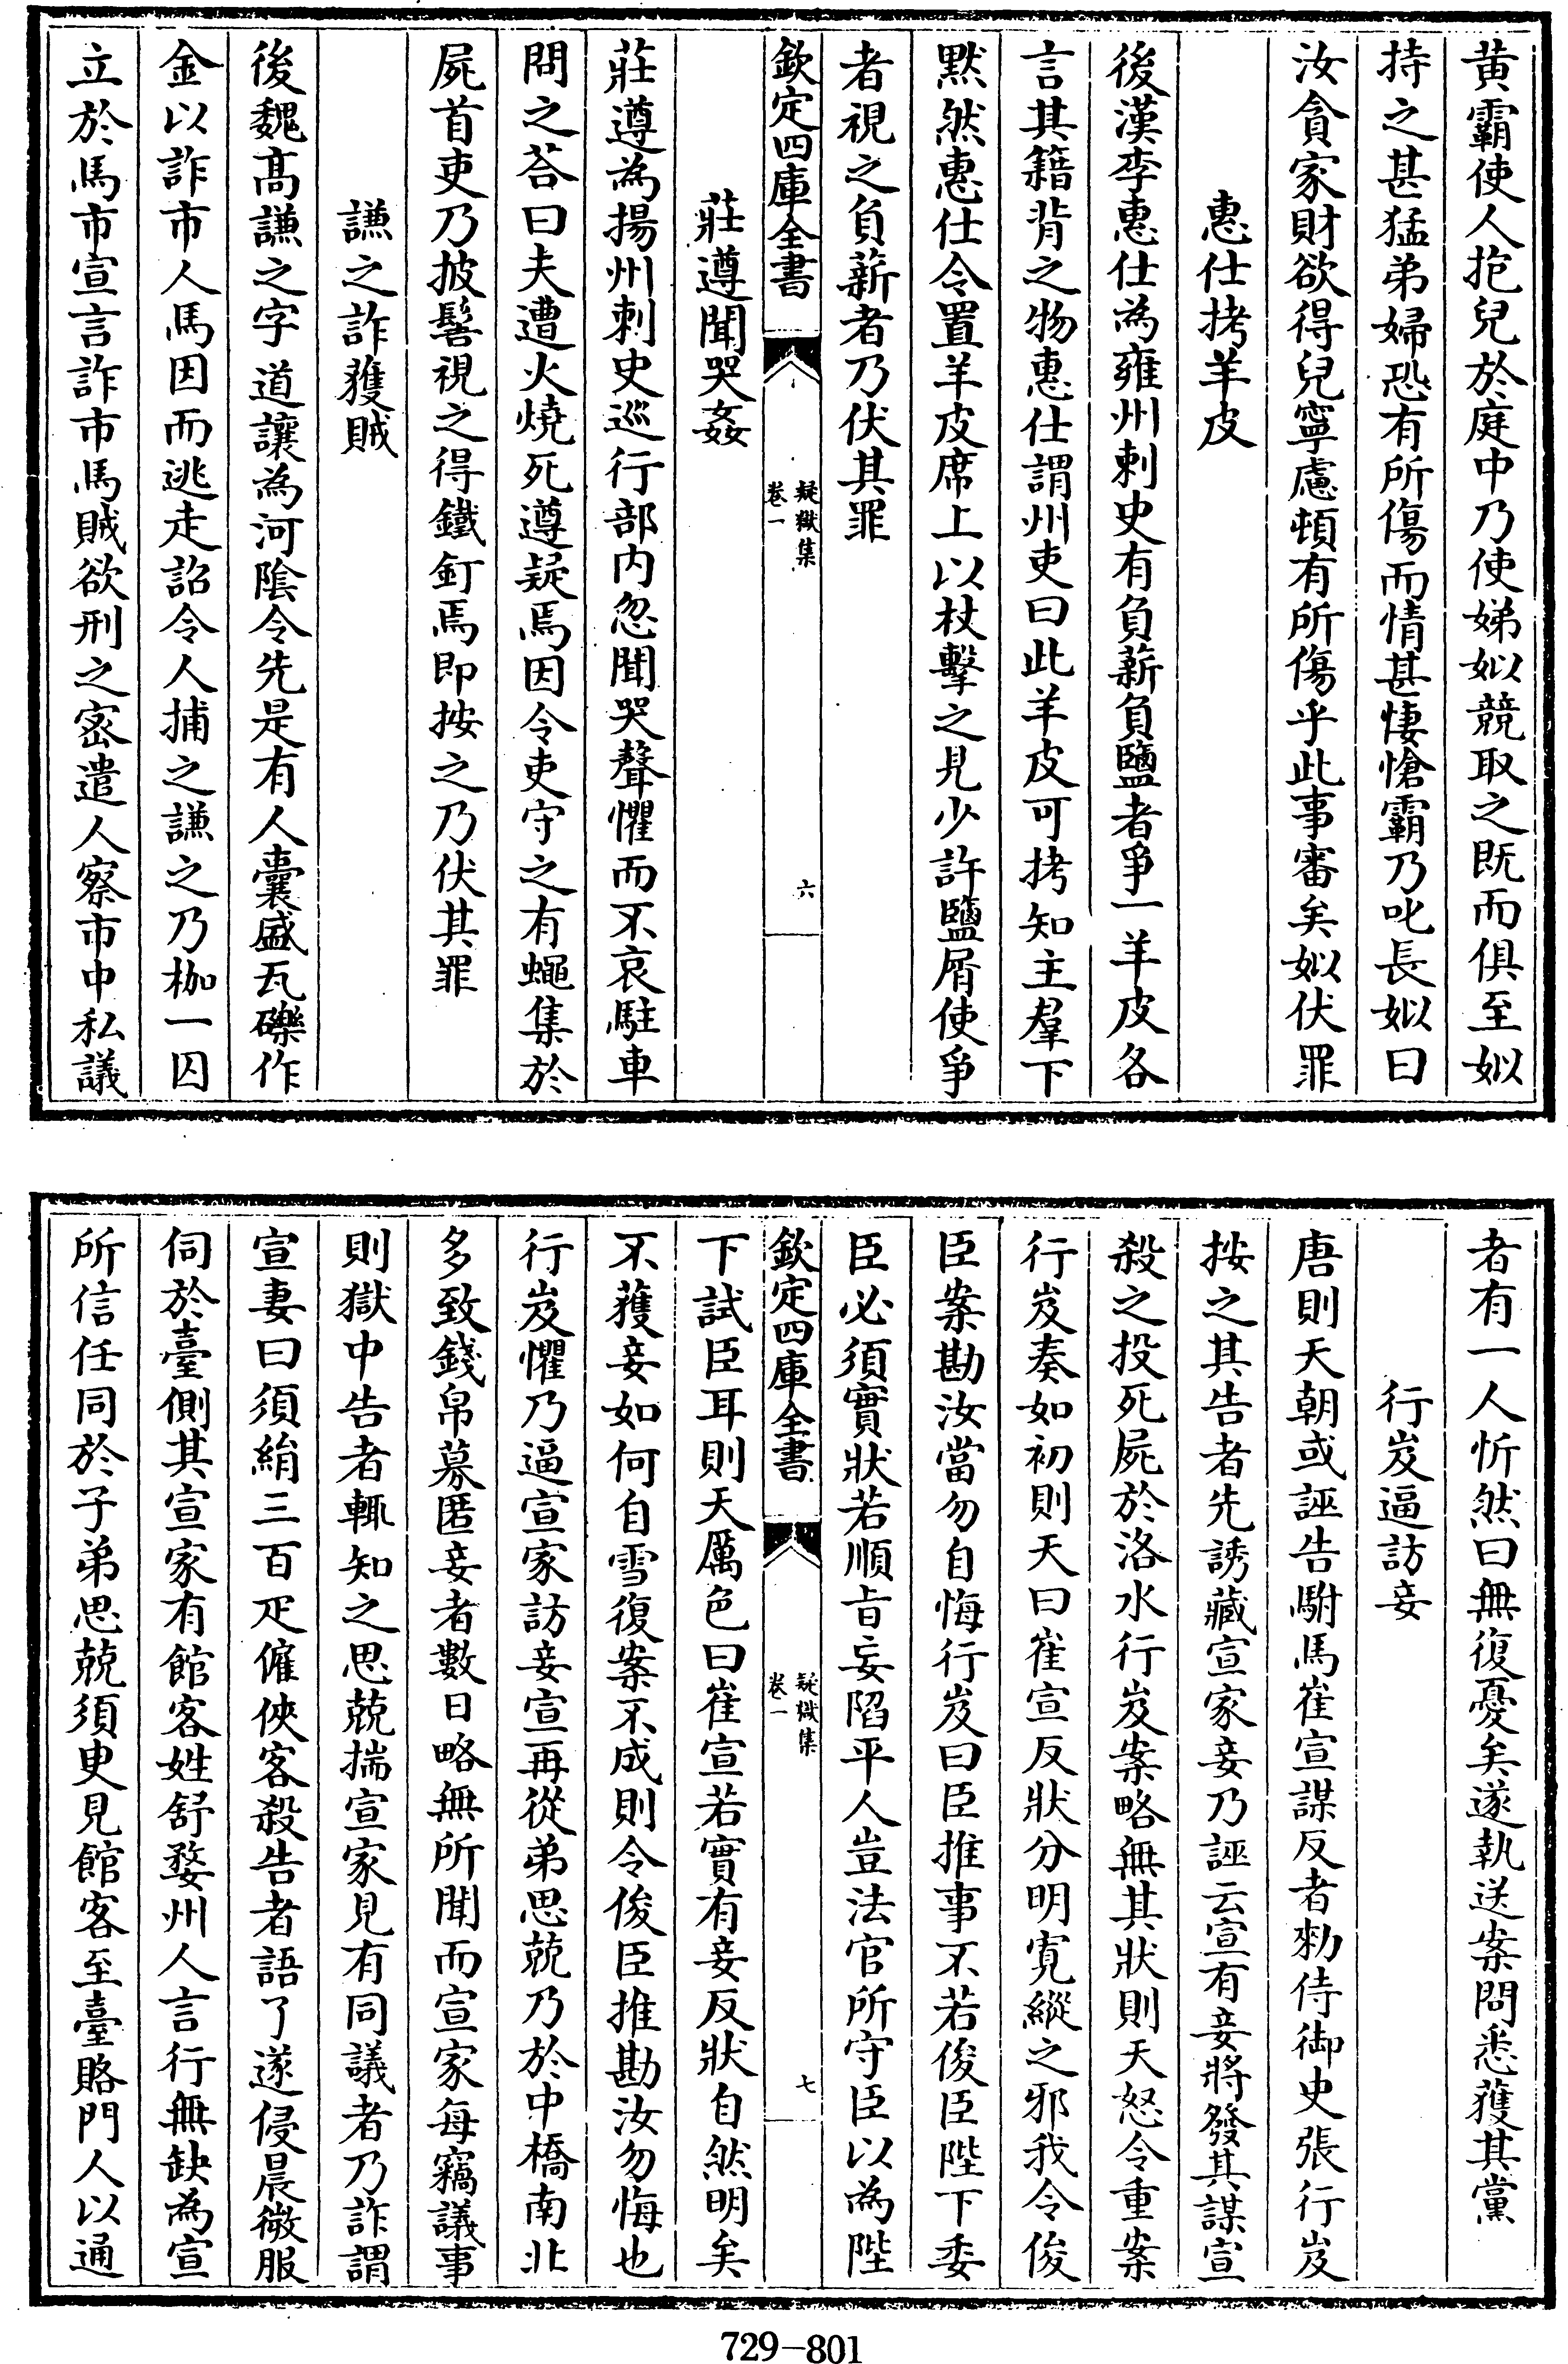 黄霸使人抱兒於庭中乃使娣姒競取之既而俱至姒
持之甚猛弟婦恐有所傷而情甚悽愴霸乃叱長姒曰
汝貪家財欲得兒寧慮頓有所傷乎此事審矣姒伏罪
惠仕拷羊皮
後漢李惠仕為雍州刺史有負薪負鹽者爭一羊皮各
言其籍背之物惠仕謂州吏曰此羊皮可拷知主羣下
黙然惠仕令置羊皮席上以杖擊之見少許鹽屑使爭
者視之負薪者乃伏其罪
欽定四庫全書
疑獄集
卷一
六
莊遵聞哭姦
莊遵為揚州刺史巡行部内忽聞哭聲懼而不哀駐車
問之荅曰夫遭火燒死遵疑焉因令吏守之有蠅集於
屍首吏乃披髻視之得鐵釘焉即按之乃伏其罪
謙之詐獲賊
後魏髙謙之字道讓為河隂令先是有人囊盛瓦礫作
金以詐市人馬因而逃走詔令人捕之謙之乃枷一囚
立於馬市宣言詐市馬賊欲刑之宻遣人察市中私議
者有一人忻然曰無復憂矣遂執送案問悉獲其黨
行岌逼訪妾
唐則天朝或誣告駙馬崔宣謀反者勑侍御史張行岌
按之其告者先誘藏宣家妾乃誣云宣有妾將發其謀宣
殺之投死屍於洛水行岌案略無其狀則天怒令重案
行岌奏如初則天曰崔宣反狀分明寛縱之邪我令俊
臣案勘汝當勿自悔行岌曰臣推事不若俊臣陛下委
臣必須實狀若順㫖妄陷平人豈法官所守臣以為陛
欽定四庫全書
疑獄集
卷一
七
下試臣耳則天厲色曰崔宣若實有妾反狀自然明矣
不獲妾如何自雪復案不成則令俊臣推勘汝勿悔也
行岌懼乃逼宣家訪妾宣再從弟思兢乃於中橋南北
多致錢帛募匿妾者數日略無所聞而宣家每竊議事
則獄中告者輙知之思兢揣宣家見有同議者乃詐謂
宣妻曰須絹三百疋僱俠客殺告者語了遂侵晨微服
伺於臺側其宣家有館客姓舒婺州人言行無缺為宣
所信任同於子弟思兢須臾見館客至臺賂門人以通
729-801